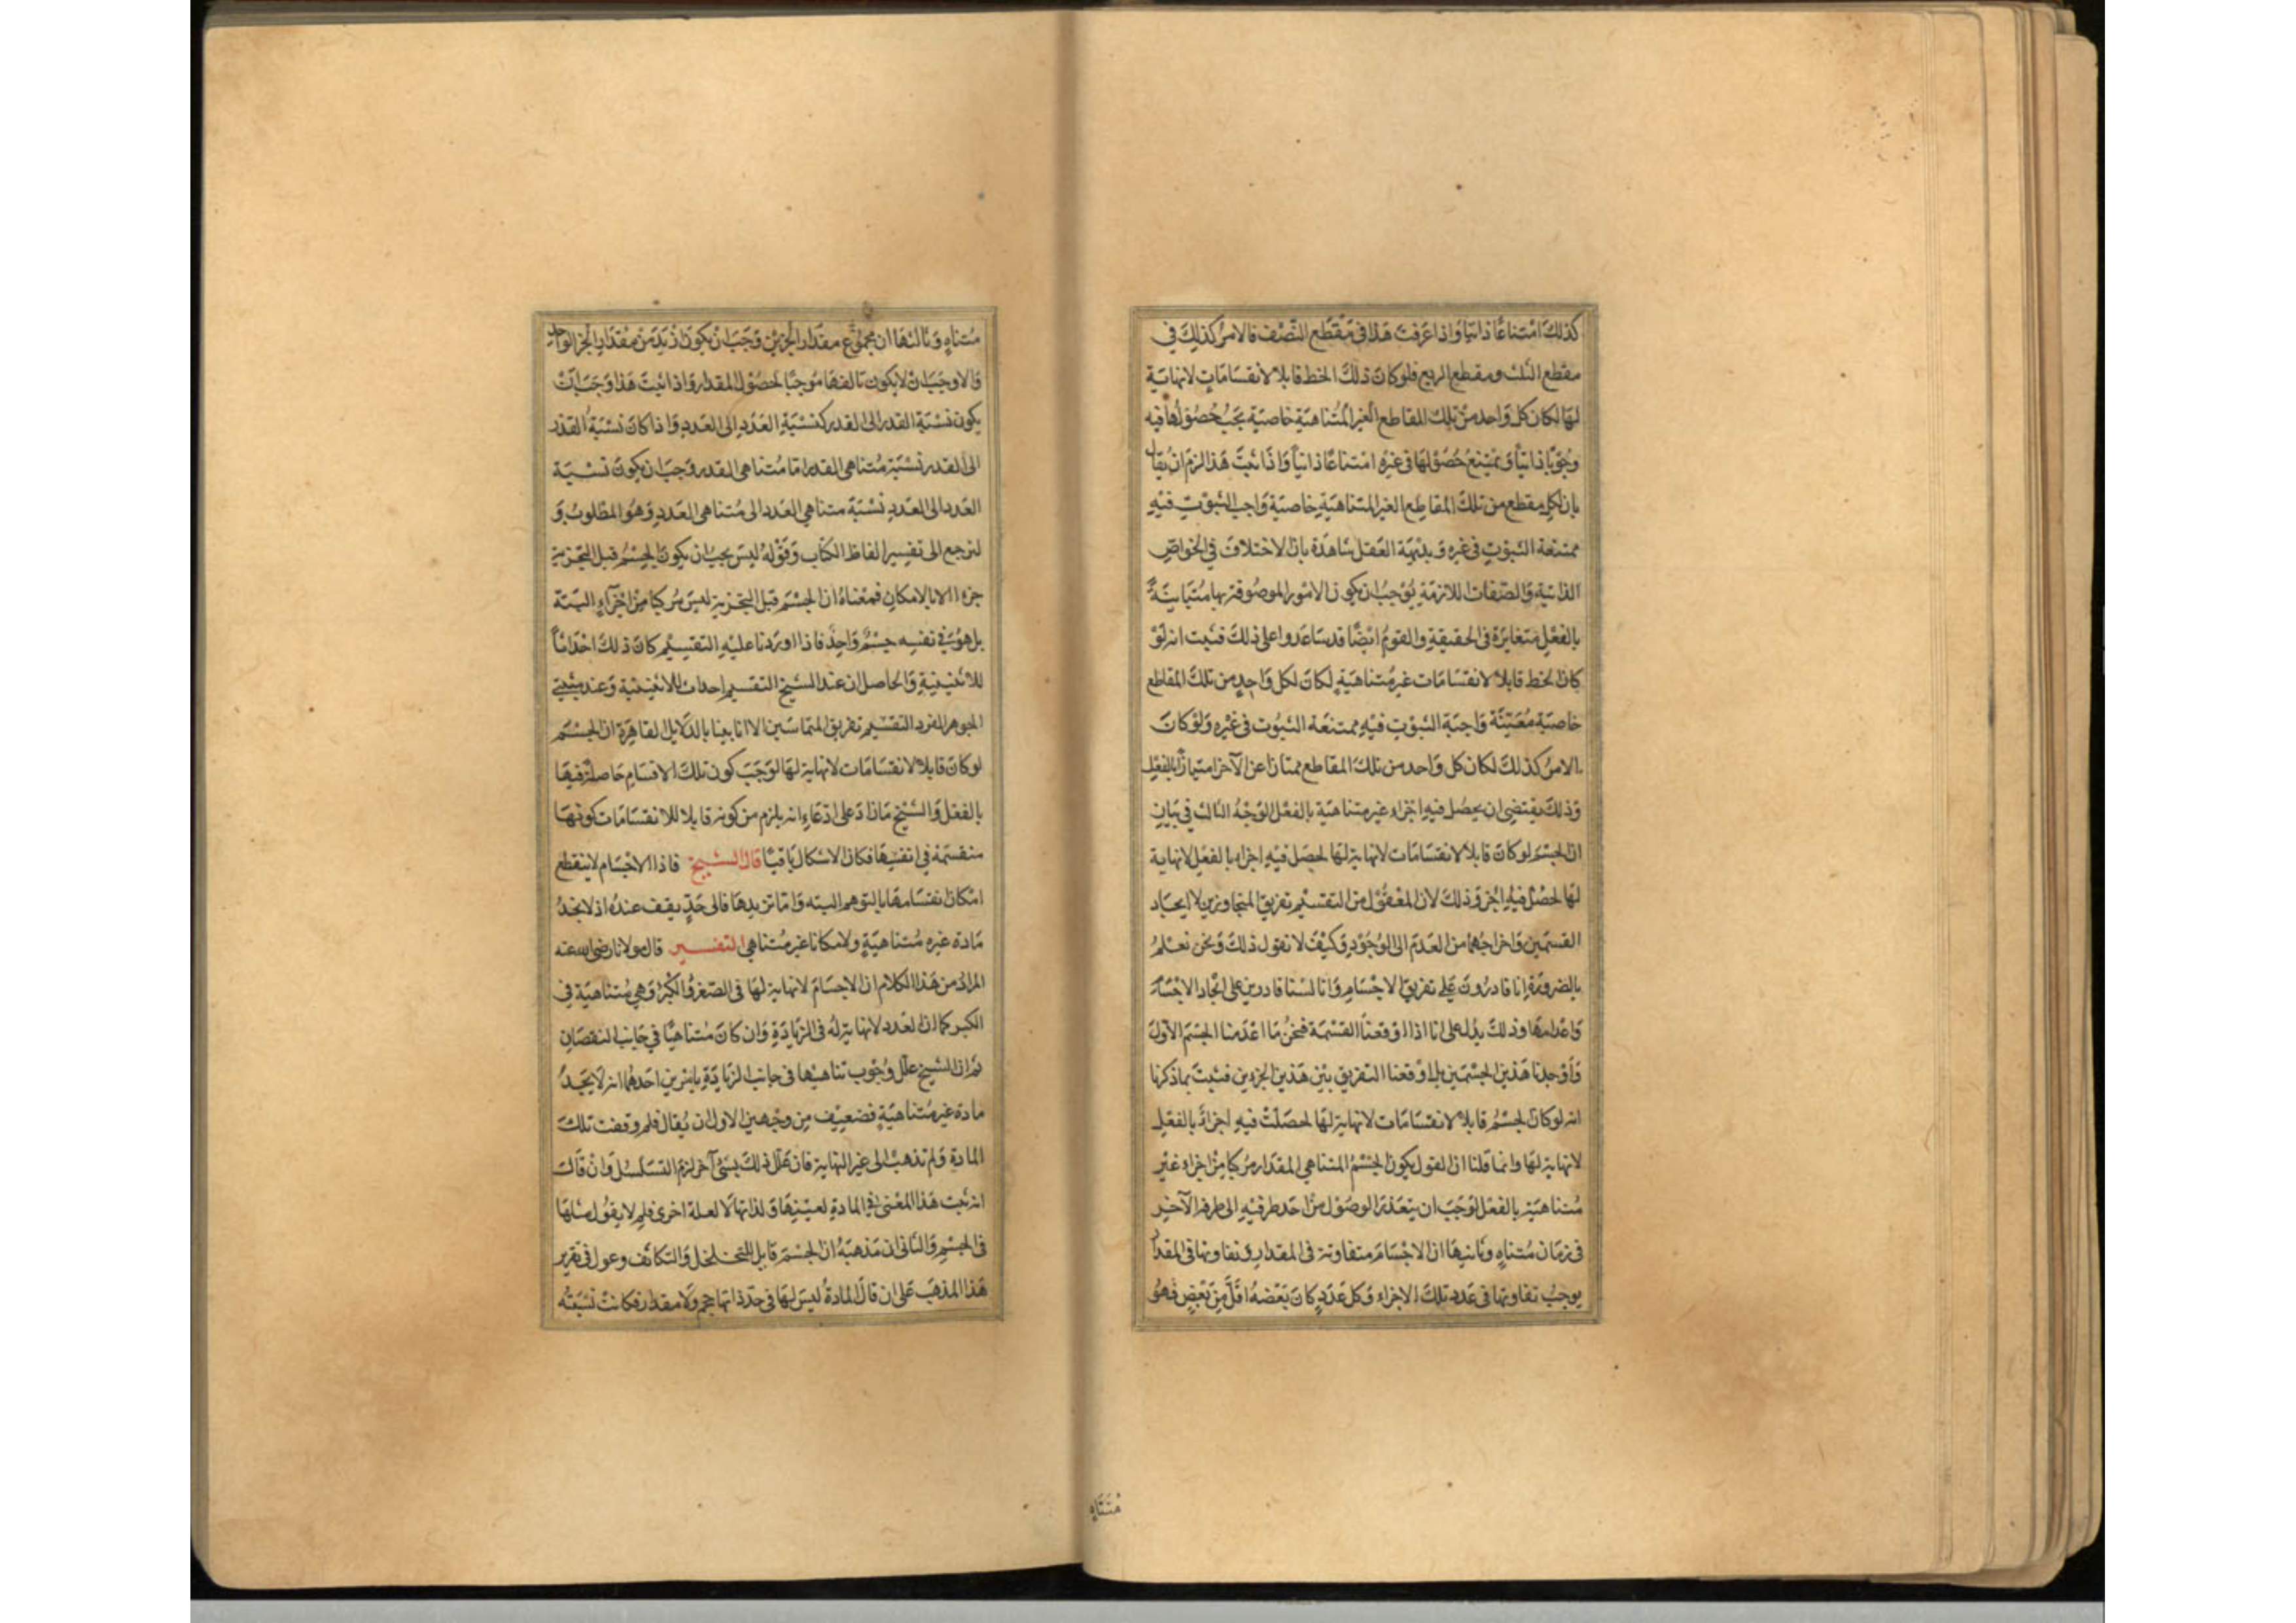 كذلك امتناعا ذاتيا واذا عرفت هذا في مقطع النصف فالامر كذلك في
مقطع الثلث ومقطع الربع فلو كان ذلك الخط قابلا لانقسامات لا نهاية
لها لكان كل واحد من تلك المقاطع الغير المتناهية خاصية يجب حصولها فيه
وجوبا ذاتيا ويمتنع حصولها في غيره امتناعا ذاتيا واذا ثبت هذا لزم ان يقال
بان لكل مقطع من تلك المقاطع الغير المتناهية خاصية واجب الثبوت فيه
ممتنعة الثبوت في غيره وبديهة العقل شاهدة بان الاختلاف في الخواص
الذاتية والصفات اللازمة يوجب ان يكون الامور الموصوفة بها متباينة
بالفعل متغايرة في الحقيقة والقوم ايضا قد ساعدوا على ذلك فثبت انه لو
كان الخط قابلا لانقسامات غير متناهية لكان لكل واحد من تلك المقاطع
خاصية معينة واجبة الثبوت فيه ممتنعة الثبوت في غيره ولو كان
الامر كذلك لكان كل واحد من تلك المقاطع ممتازا عن الآخر امتيازا بالفعل
وذلك يقتضي ان يحصل فيه اجزاء غير متناهية بالفعل الوجه الثالث في بيان
ان الجسم لو كان قابلا لانقسامات لا نهاية لها لحصل فيه اجزاء بالفعل لا نهاية
لها لحصل فيه اجز وذلك لان المعقول من التقسيم تفريق المتجاورين لا ايجاد
القسمين واخراجهما من العدم الى الوجود وكيف لا نقول ذلك ونحن نعلم
بالضرورة انا قادرون على تفريق الاجسام وانا لسنا قادرين على اتجاد الاجسام
واعدامها وذلك يدل على انا اذا اوقعنا القسمة فنحن ما اعدمنا الجسم الاول
واوجدنا هذين الجسمين بل اوقعنا التفريق بين هذين الجزءين فثبت بما ذكرنا
انه لو كان الجسم قابلا لانقسامات لا نهاية لها لحصلت فيه اجزاء بالفعل
لا نهاية لها وانما قلنا ان القول بكون الجسم المتناهي المقدار مركبا من اجزاء غير
متناهية بالفعل لوجب ان يتعذر الوصول من احد طرفيه الى طرفه الآخر
في زمان متناه وثانيها ان الاجسام متفاوتة في المقدار وتفاوتها في المقدار
يوجب تفاوتها في عدد تلك الاجزاء وكل عدد كان بعضه اقل من بعض فهو
متناه
متناه وثالثها ان مجموع مقدار الجزئين وجب ان يكون ازيد من مقدار الجزء الواحد
والا وجب ان لا يكون تالفها موجبا لحصول المقدار واذا ثبت هذا وجب ان
يكون نسبة القدر الى القدر كنسبة العدد الى العدد واذا كان نسبة القدر
الى القدر نسبة متناهي القدر اما متناهي القدر وجب ان يكون نسبة
العدد الى العدد نسبة متناهي العدد الى متناهي العدد وهو المطلوب و
لنرجع الى تفسير الفاظ الكتاب وقوله ليس يجب ان يكون الجسم قبل التجزية
جزء الا بالامكان فمعناه ان الجسم قبل التجزية ليس مركبا من اجزاء البتة
بل هو في نفسه جسم واحد فاذا اوردنا عليه التقسيم كان ذلك احداثا
للاثنينية والحاصل ان عند الشيخ التقسيم احداث للاثنينية وعند مثبتي
الجوهر الفرد التقسيم تفريق المتماسين الا انا بينا بالدلايل القاهرة ان الجسم
لو كان قابلا لانقسامات لا نهاية لها لوجب كون تلك الاقسام حاصلة فيها
بالفعل والشيخ ما زاد على ادعاء انه يلزم من كونه قابلا للانقسامات كونها
منقسمة في انفسها فكان الاشكال باقيا قال الشيخ فاذا الاجسام لا ينقطع
امكان انقسامها بالتوهم البته واما تزيدها فالى حد يقف عنده اذ لا يجد
مادة غيره متناهية ولا مكانا غير متناهي التفسير قال مولانا رضي الله عنه
المراد من هذا الكلام ان الاجسام لا نهاية لها في الصغر والكبر وهي متناهية في
الكبر كما ان العدد لا نهاية له في الزيادة وان كان متناهيا في جانب النقصان
ثم ان الشيخ علل وجوب تناهيها في جانب الزيادة بامرين احدهما انه لا يجد
مادة غير متناهية فضعيف من وجهين الاول ان يقال فلم وقفت تلك
المادة ولم تذهب الى غير النهاية فان علل ذلك بشئ آخر لزم التسلسل وان قالت
انه ثبت هذا المعنى في المادة لعينها ولذاتها لا لعلة اخرى فلم لا يقول مثلها
في الجسم والثاني ان مذهبه ان الجسم قابل للتخلخل والتكاثف وعول في تقرير
هذا المذهب على ان قال المادة ليس لها في حد ذاتها حجم ولا مقدار فكانت نسبته